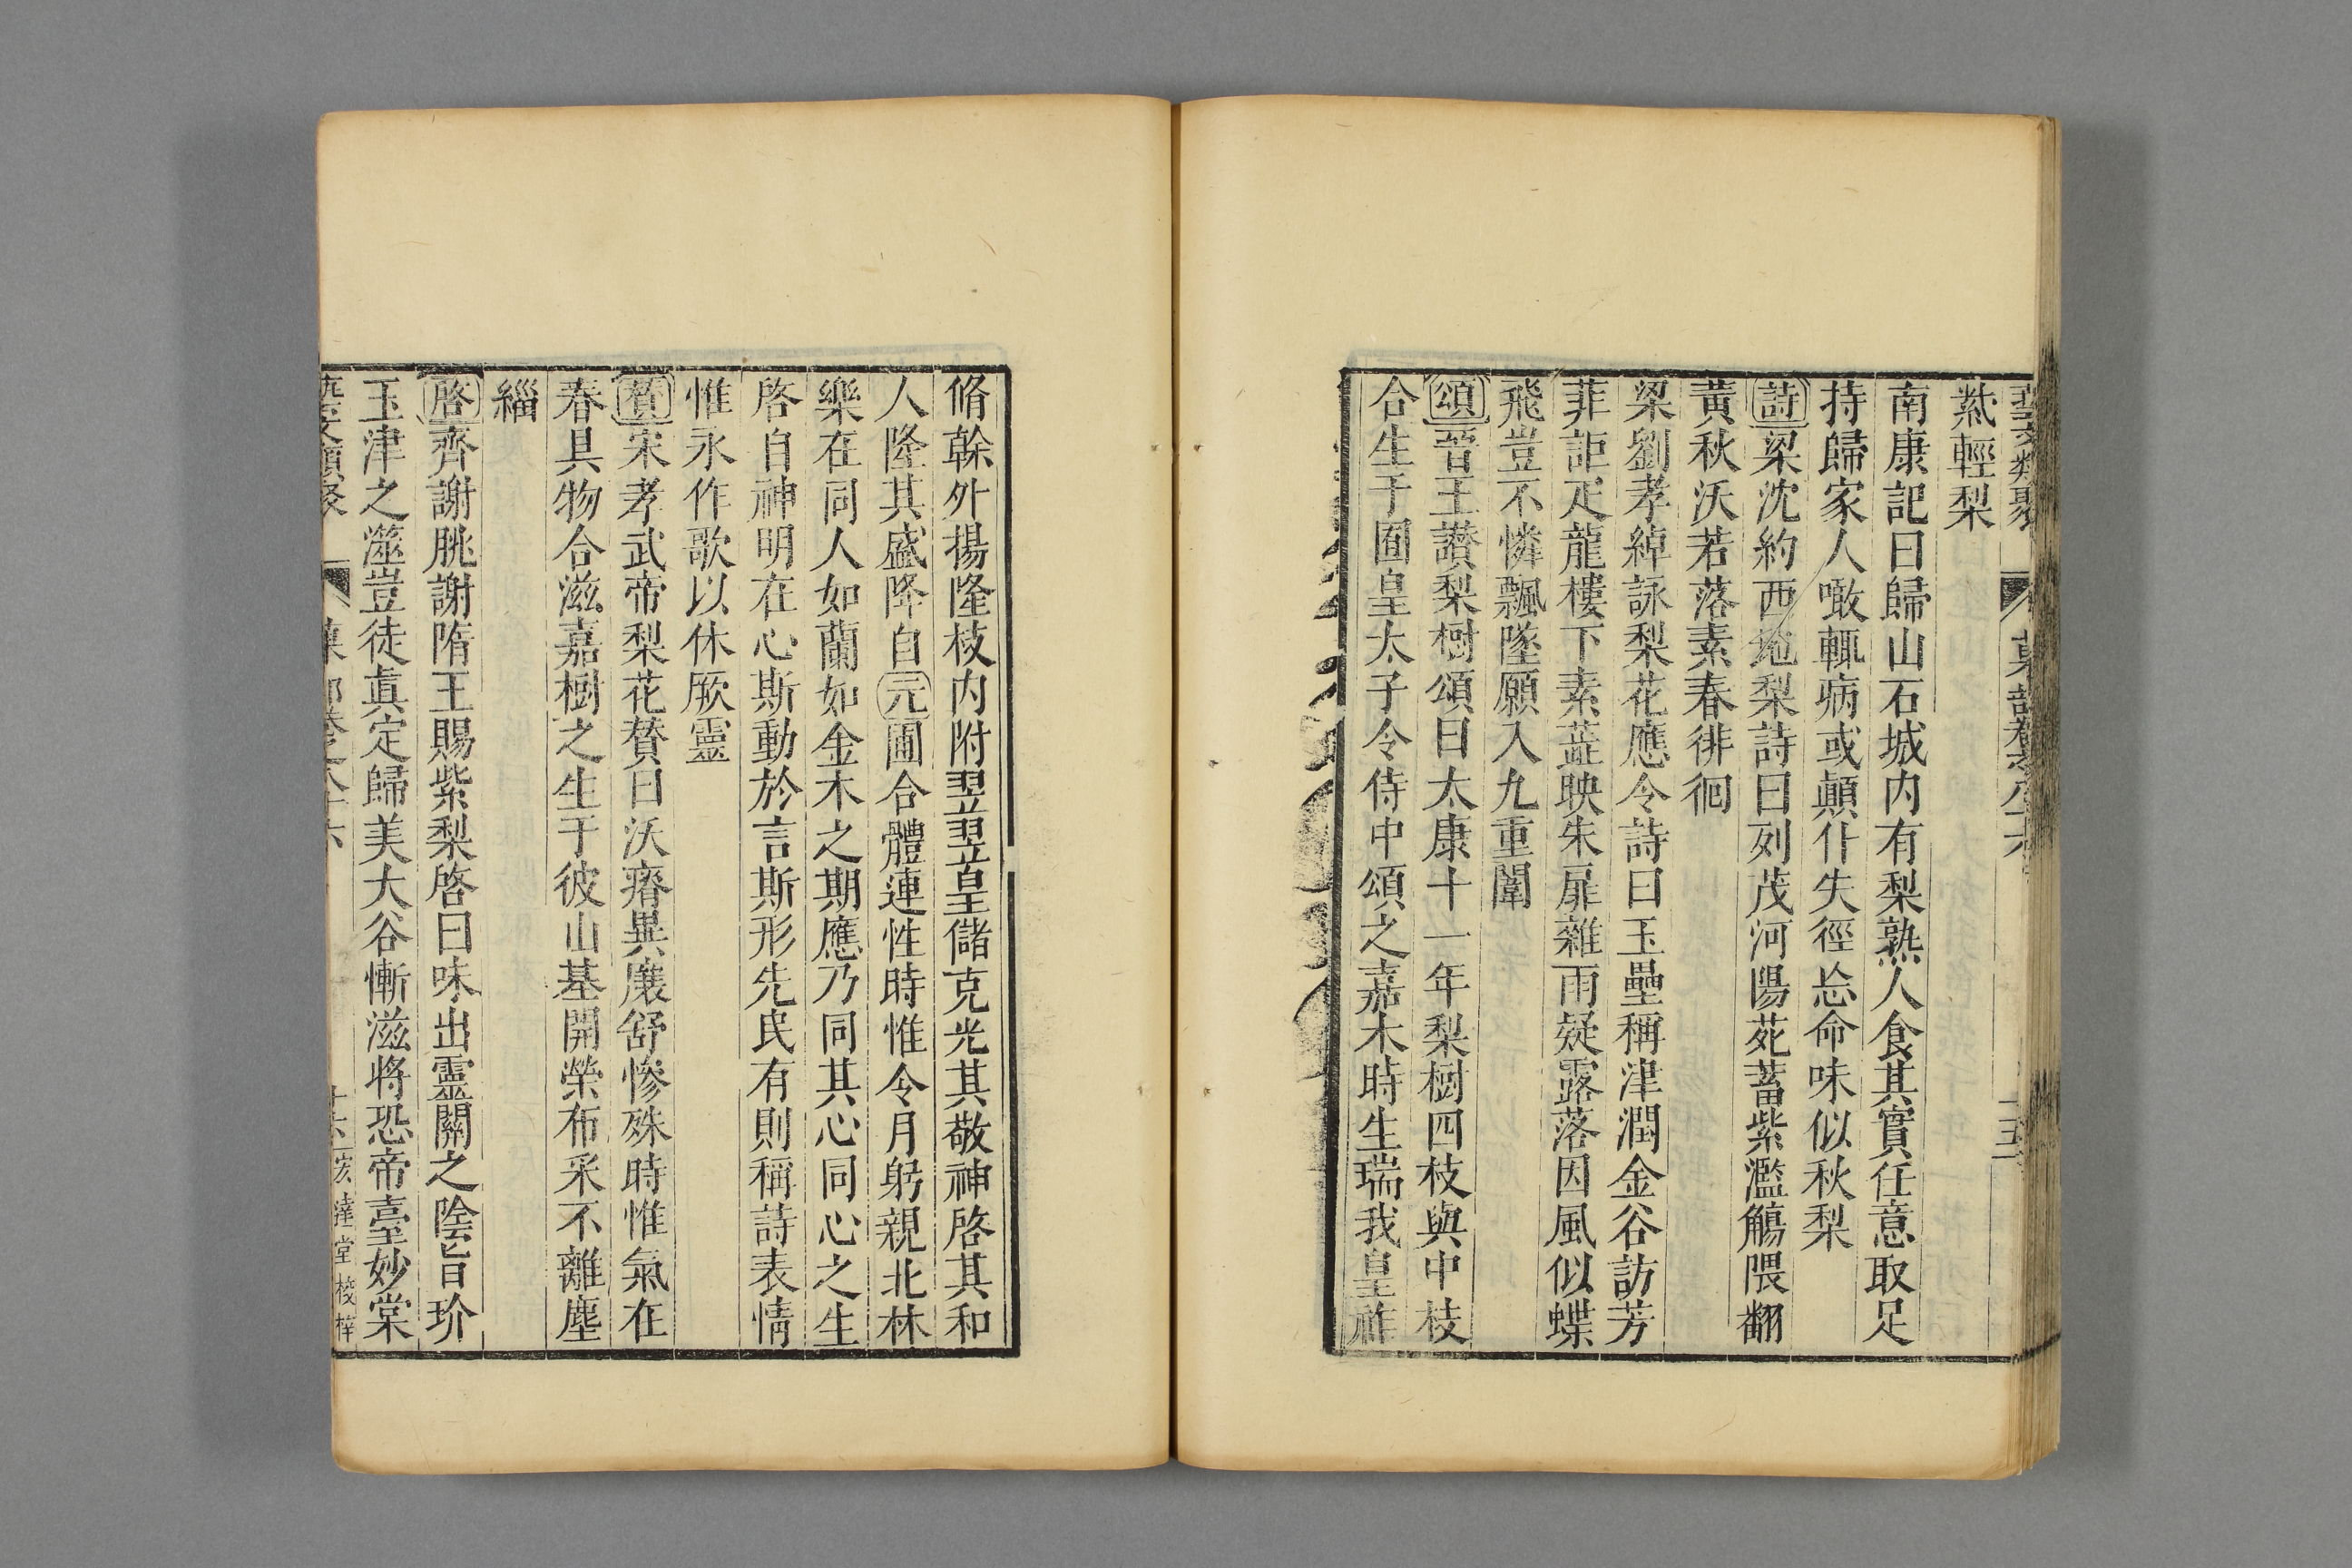 藝文類聚 菓部卷之八十六 十五
紫輕梨
南康記曰歸山石城内有梨熟人食其實任意取足
持歸家人噉輒病或顚仆失徑忩命味似秋梨
詩梁沈約西地梨詩曰列茂河陽苑蓄紫濫觴隈翻
黄秋沃若落素春徘徊
梁劉孝綽詠梨花應令詩曰玉壘稱津潤金谷訪芳
菲詎疋龍樓下素蘂映朱扉雜雨疑露落因風似蝶
飛豈不憐飄墜願入九重闈
頌晉王讃梨樹頌曰太康十一年梨樹四枝與中枝
合生于囿皇太子令侍中頌之嘉木時生瑞我皇祚
脩榦外揚隆枝内附翌翌皇儲克光其敬神啓其和
人隆其盛降自元圃合體連性時惟令月躬親北林
樂在同人如蘭如金木之期應乃同其心同心之生
啓自神明在心斯動於言斯形先民有則稱詩表情
惟永作歌以休厥靈
贊宋孝武帝梨花贊曰沃瘠異壤舒慘殊時惟氣在
春具物合滋嘉樹之生于彼山基開榮布采不離塵
緇
啓齊謝朓謝隋王賜紫梨啓曰味出靈關之陰旨玠
玉津之澨豈徒眞定歸美大谷慚滋將恐帝臺妙棠
藝文類聚 菓部卷之八十六 十六 宏達堂校梓